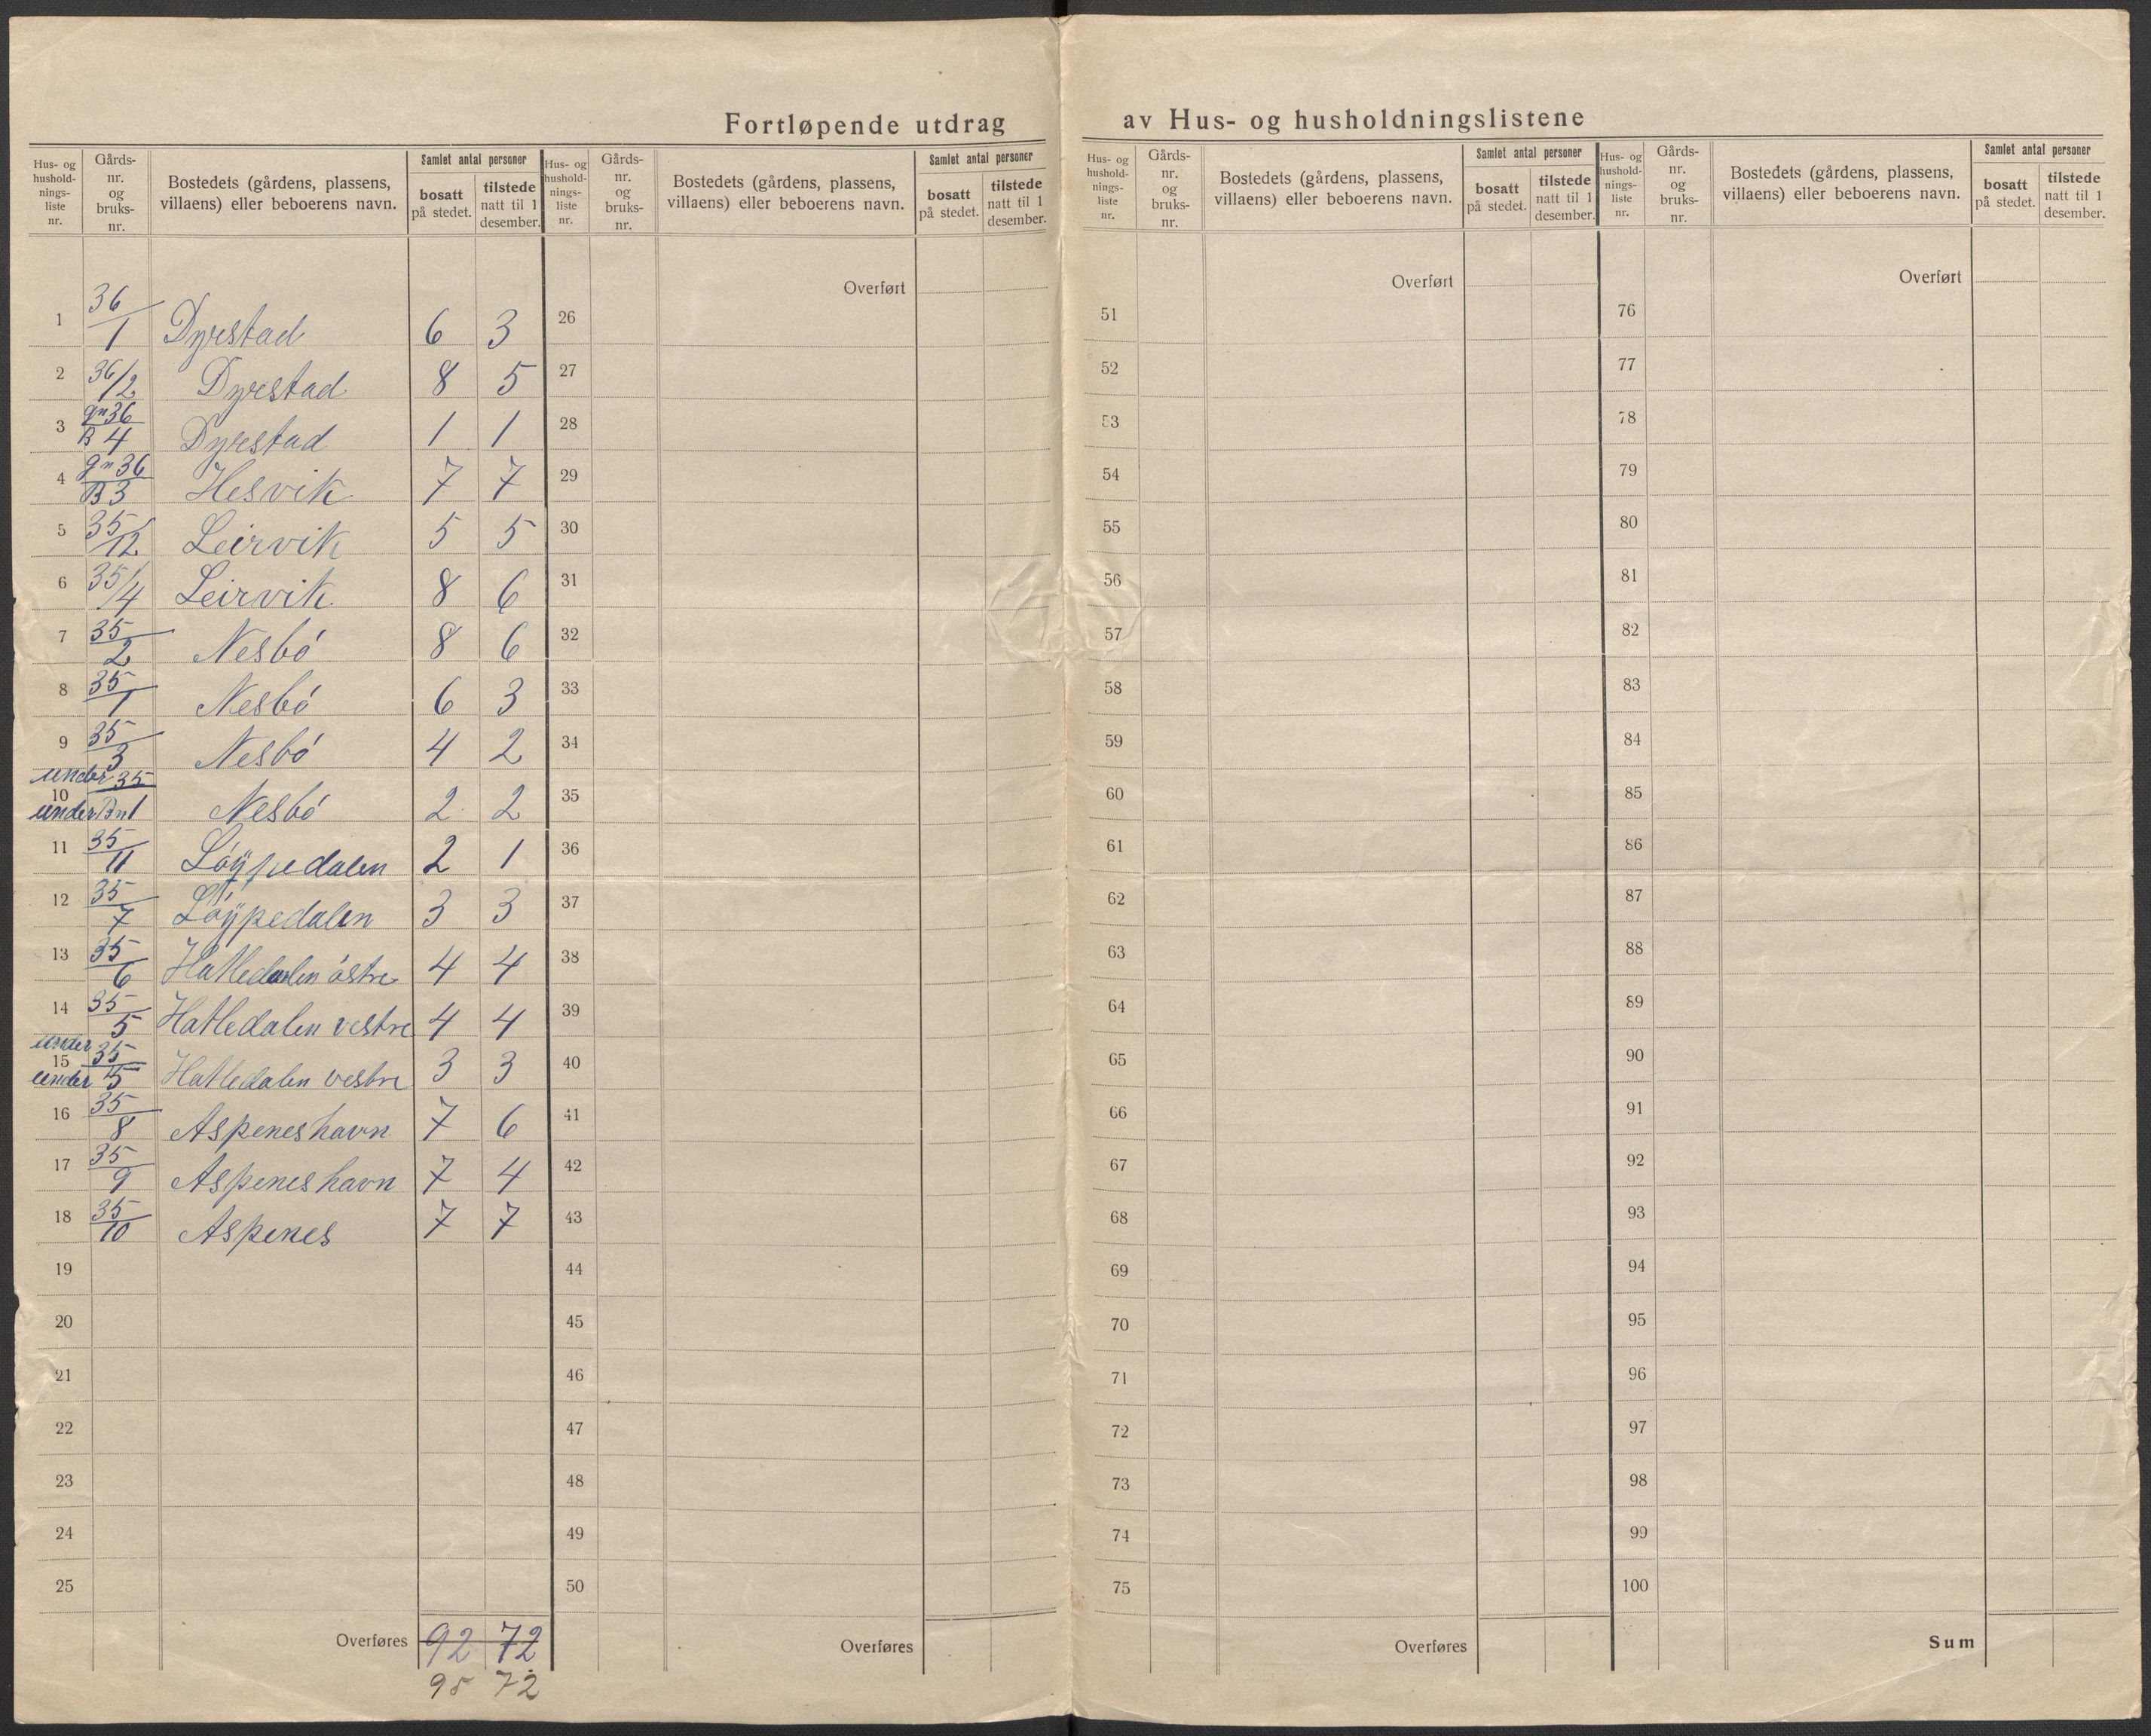 Fortløpende utdrag av Hus- og husholdningslistene
Hus- og hushold-nings-liste nr. | Gårds-nr. og bruks-nr. | Bostedets (gårdens, plassens, villaens) eller beboerens navn. | Samlet antal personer | bosatt på stedet. | tilstede natt til 1 desember.
1 36/1 Dyrestad 6 3
2 36/2 Dyrestad 8 5
3 gn 36 B 4 Dyrestad 1 1
4 gn 36 B 3 Hesvik 7 7
5 35/12 Leirvik 5 5
6 35/4 Leirvik 8 6
7 35/2 Nesbó 8 6
8 35/1 Nesbó 6 3
9 35/3 Nesbó 4 2
10 under 35 under Bn 1 Nesbó 2 2
11 35/11 Lóÿpedalen 2 1
12 35/7 Lóÿpedalen 3 3
13 35/6 Hatledalen óstre 4 4
14 35/5 Hatledalen vestre 4 4
15 under 35 under 5 Hatledalen vestre 3 3
16 35/8 Aspeneshavn 7 6
17 35/9 Aspeneshavn 7 4
18 35/10 Aspenes 7 7
19
20
21
22
23
24
25
Overføres 92 72
95 72
Hus- og hushold-nings-liste nr. | Gårds-nr. og bruks-nr. | Bostedets (gårdens, plassens, villaens) eller beboerens navn. | Samlet antal personer | bosatt på stedet. | tilstede natt til 1 desember.
Overført
26
27
28
29
30
31
32
33
34
35
36
37
38
39
40
41
42
43
44
45
46
47
48
49
50
Overføres
Hus- og hushold-nings-liste nr. | Gårds-nr. og bruks-nr. | Bostedets (gårdens, plassens, villaens) eller beboerens navn. | Samlet antal personer | bosatt på stedet. | tilstede natt til 1 desember.
Overført
51
52
53
54
55
56
57
58
59
60
61
62
63
64
65
66
67
68
69
70
71
72
73
74
75
Overføres
Hus- og hushold-nings-liste nr. | Gårds-nr. og bruks-nr. | Bostedets (gårdens, plassens, villaens) eller beboerens navn. | Samlet antal personer | bosatt på stedet. | tilstede natt til 1 desember.
Overført
76
77
78
79
80
81
82
83
84
85
86
87
88
89
90
91
92
93
94
95
96
97
98
99
100
Sum